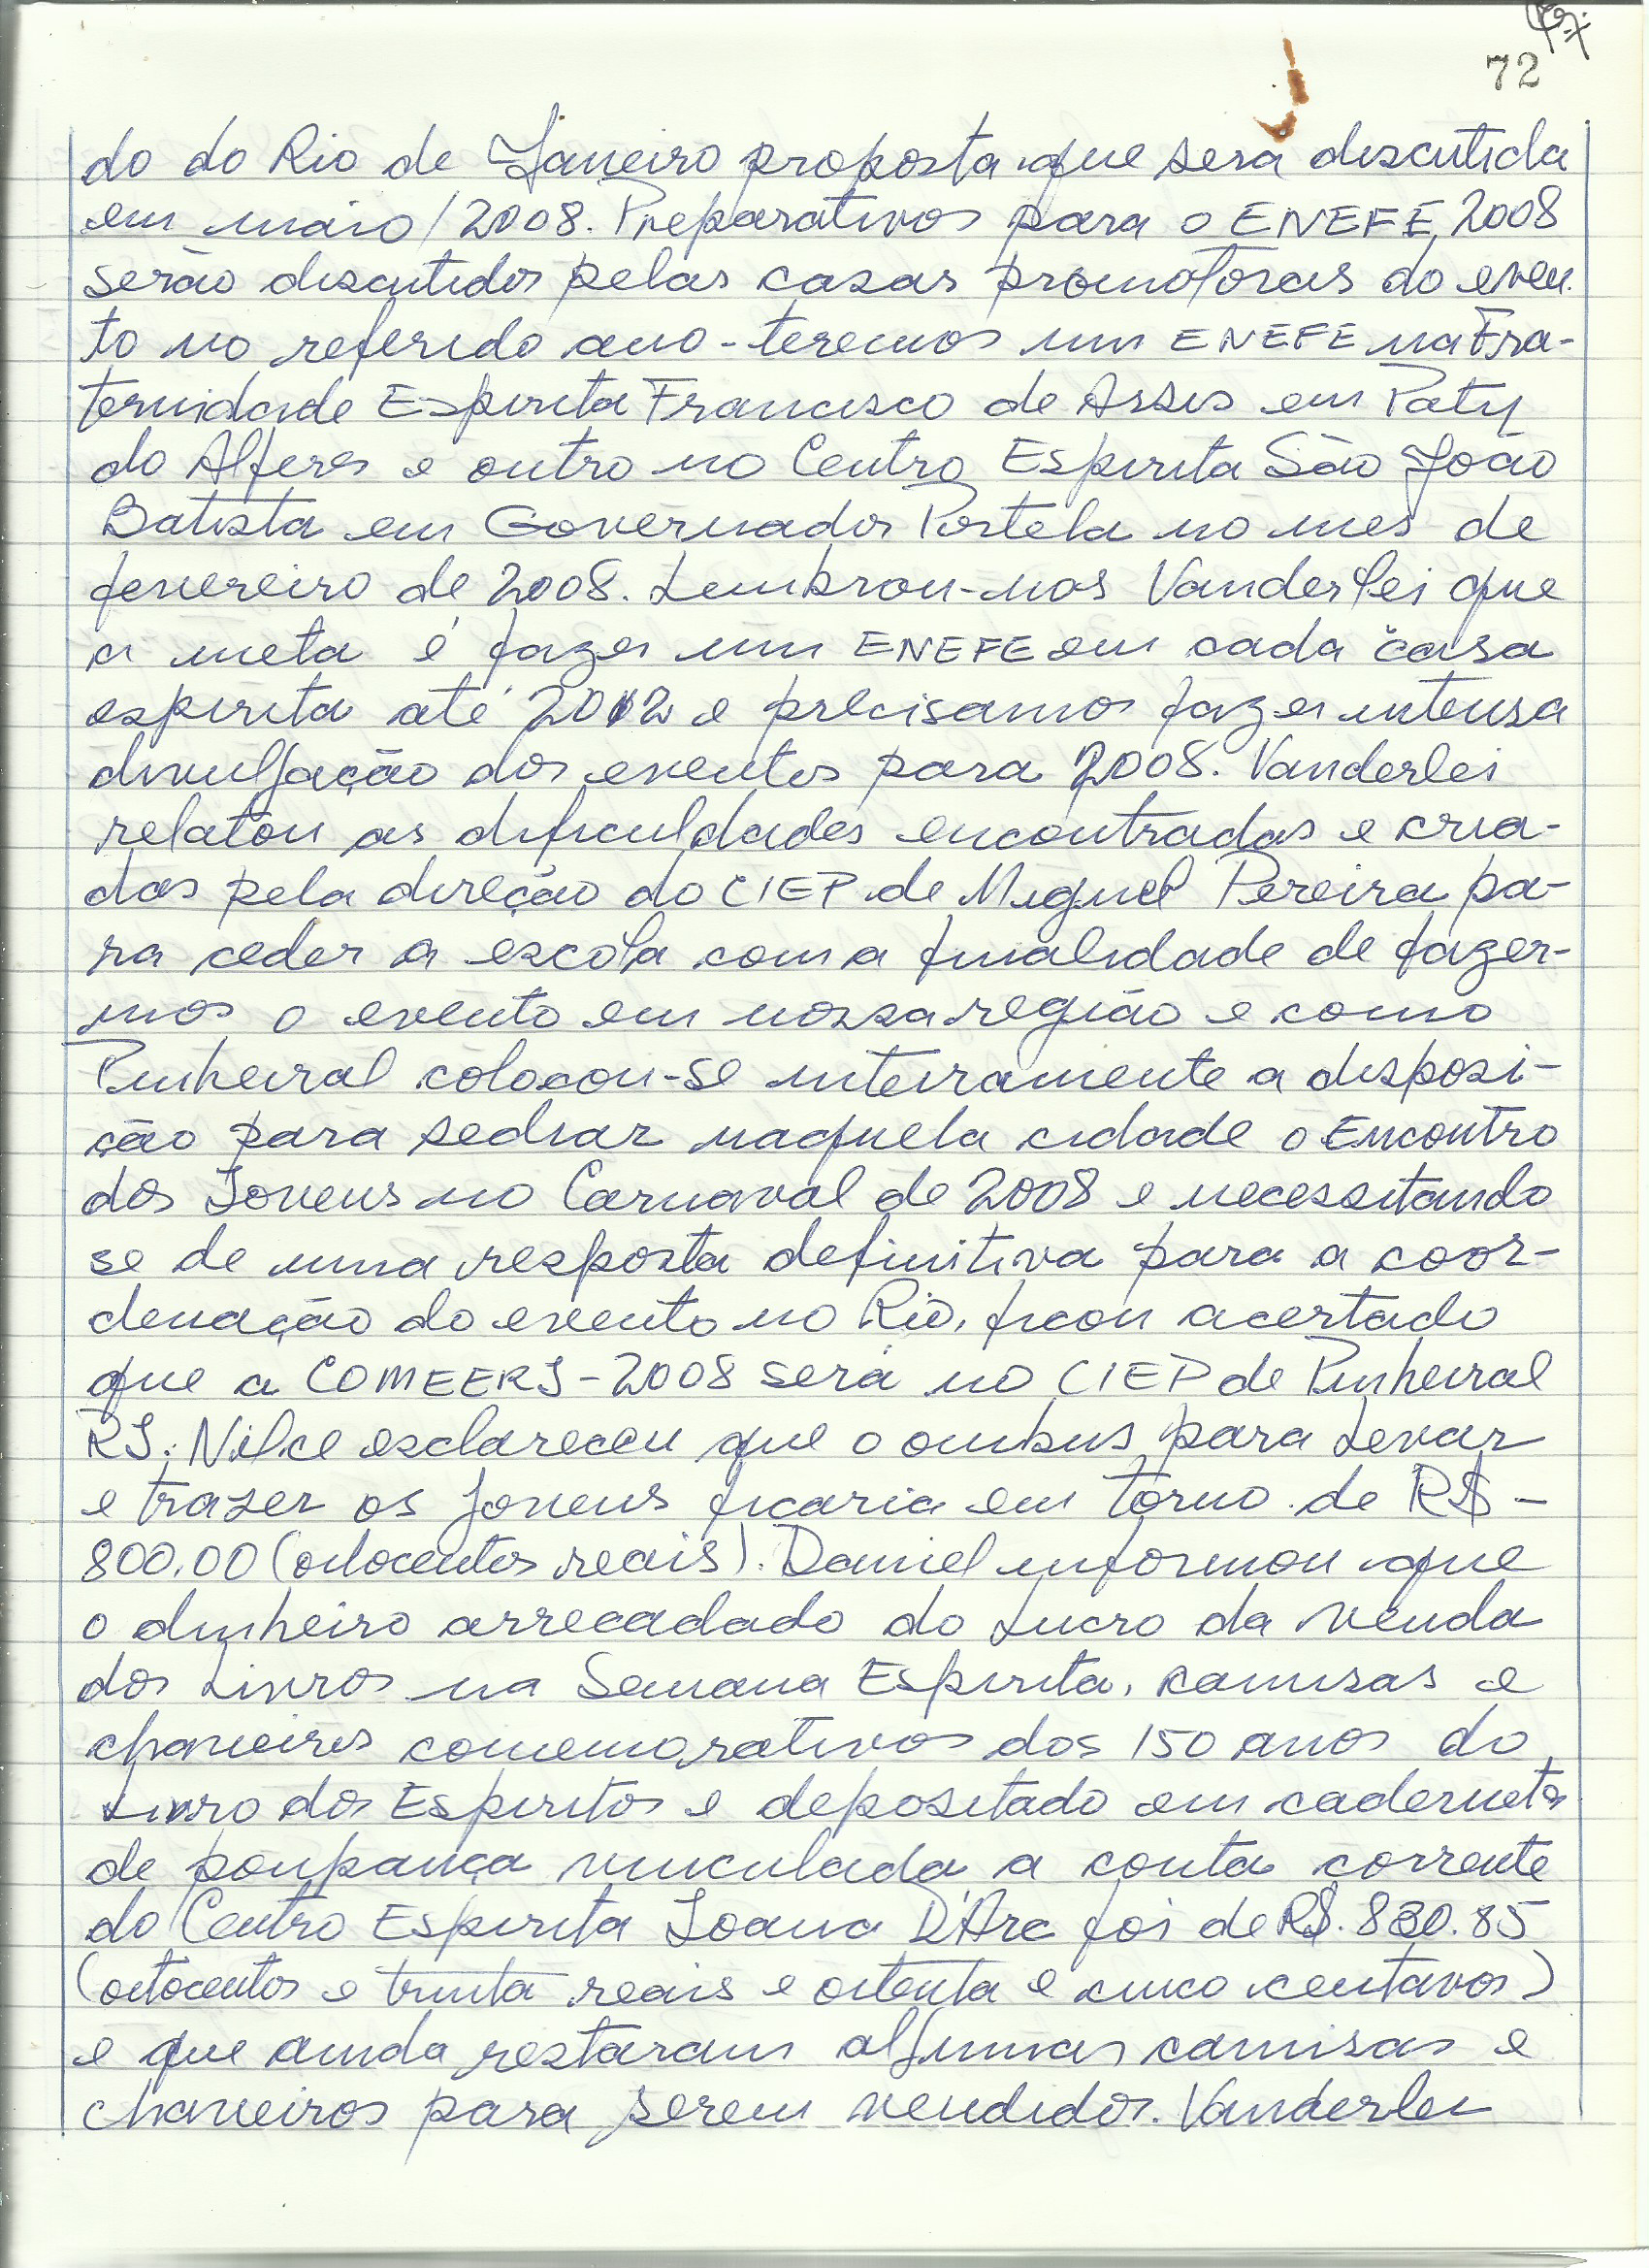 72
do do Rio de Janeiro proposta que será discutida
em maio/2008. Preparativos para o ENEFE 2008
serão discutidos pelas casas promotoras do even-
to no referido ano - teremos um ENEFE na Fra-
ternidade Espirita Francisco de Assis em Paty
do Alferes e outro no Centro Espirita São João
Batista em Governador Portela no mes de
fevereiro de 2008. Lembrou-nos Vanderlei que
a meta é fazer um ENEFE em cada casa
espirita até 2012 e precisamos fazer intensa
divulgação dos eventos para 2008. Vanderlei
relatou as dificuldades encontradas e cria-
das pela direção do CIEP de Miguel Pereira pa-
ra ceder a escola com a finalidade de fazer-
mos o evento em nossa região e como
Pinheiral colocou-se inteiramente a disposi-
ção para sediar naquela cidade o Encontro
dos Jovens no Carnaval de 2008 e necessitando
se de uma resposta definitiva para a coor-
denação do evento no Rio, ficou acertado
que a COMEERJ-2008 será no CIEP de Pinheiral
RJ. Nilce esclareceu que o onibus para levar
e trazer os jovens ficaria em torno de R$ -
800,00 (oitocentos reais). Daniel informou que
o dinheiro arrecadado do lucro da venda
dos livros na Semana Espirita, camisas e
chaveiros comemorativos dos 150 anos do
Livro dos Espiritos e depositado em caderneta
de poupança vinculada a conta corrente
do Centro Espirita Joana D'Arc foi de R$. 830.85
(oitocentos e trinta reais e oitenta e cinco centavos)
e que ainda restaram algumas camisas e
chaveiros para serem vendidos. Vanderlei